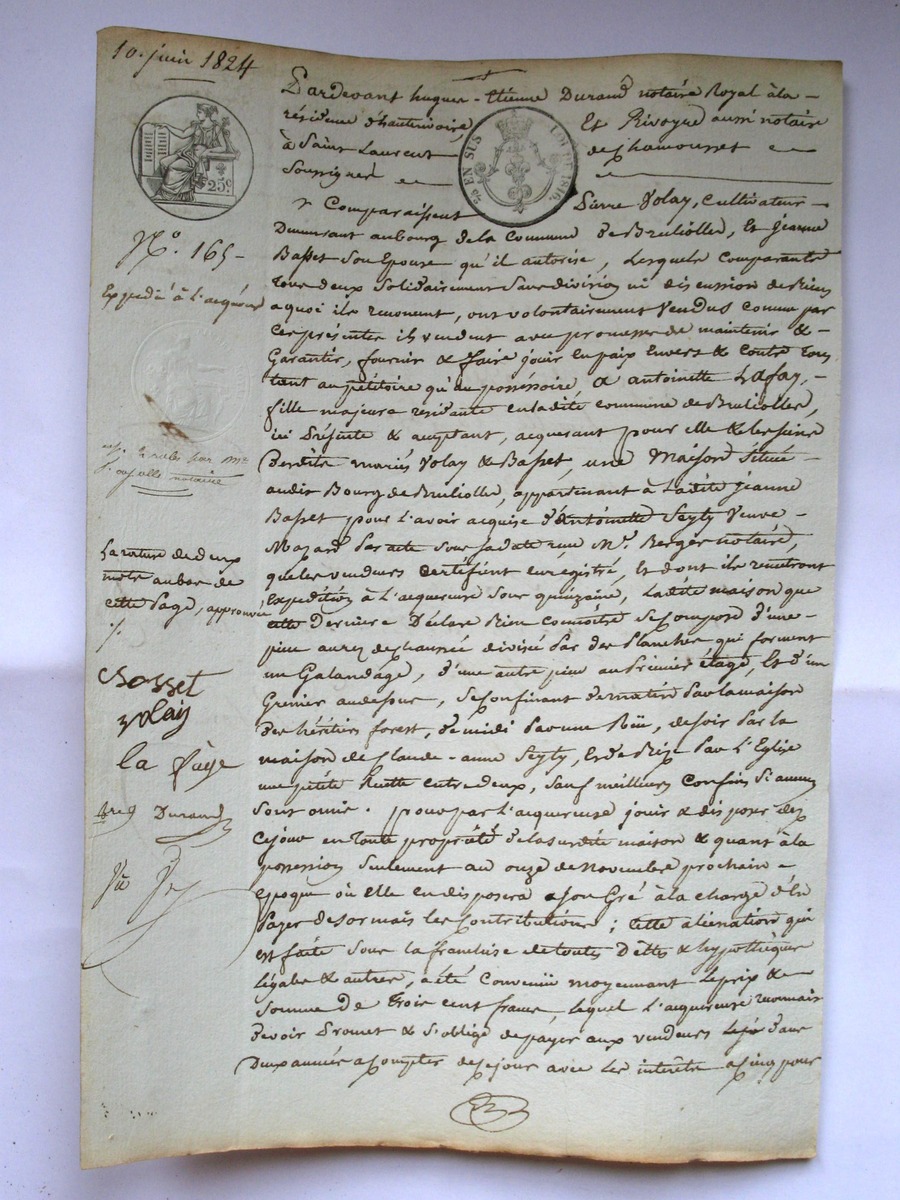 10. juin 1824
Pardevant hugues-Etienne Durand notaire Royal à la
résidence d'hauterivoire, Et Rivoyre aussi notaire
à Saint Laurent de Chamousset
Soussignés
25c.
25 EN SUS
LOI DE 1816.
Comparaissent Pierre Volay, Cultivateur
Demeurant au bourg de la Commune de Brulioller, Et Jeanne
Basset Son Epouse qu'il autorise, Lesquels Comparants
tous deux Solidairement Sans division ni discussion de Biens
a quoi ils renoncent, ont volontairement Vendus comme par
Ces présentes ils vendent avec promesse de maintenir &
Garantir, fournir & faire jouir En paix Envers & Contre tous
tant au pétitoire qu'au posséssoire, a antoinette Lafay,
fille majeure résidante en ladite commune de Brulioller,
ici Présente & acceptant, acquerant pour elle & les siens
Desdits mariés Volay & Basset, une Maison Située
audit Bourg de Brulioller, appartenant à Ladite Jeanne
Basset pour L'avoir acquise d'Antoinette Seyty Veuve
Mazard Par acte Sous Sa date reçu Me. Berger notaire,
que les vendeurs Certifient enregistré, Et dont ils remettront
Expédition à L'acquereuse Sous quinzaine, Ladite maison que
cette Derniere Déclare Bien Connoitre Se Compose d'une
piece au rez de chaussée divisée Par des Planches qui forment
un Galandage, d'une autre piece au Premier étage, Et d'un
Grenier au dessus, Se Confinant de matin Par la maison
des héritiers forest, de midi Par une Rüe, de soir Par la
maison de Claude-anne Seyty, Et de Bize Par L'Eglise
une petite Ruette entre deux, Sauf meilleurs Confins Si aucuns
Sont omis. pour par L'acquereuse jouir & disposer dez
Ce jour en toute propriété de la susdite maison & quant à la
possession Seulement au onze de Novembre prochain
epoque où elle en disposera a Son Gré à la charge d'en
Payer desormais les Contributions; Cette alienation qui
est faite Sous la franchise de toutes Dettes & hypothèques
Légales & autres, a été Convenüe moyennant Le prix &
Somme De trois cent francs, Lequel L'acquereuse reconnait
devoir Promet & S'oblige de payer aux vendeurs
Deux années a Compter de Ce jour avec Les interêts a Cinq pour
No. 165
Expédié à l'acquéreuse
La rature de deux
mots au bas de
cette Page, approuvée
Basset
volay
la faÿe
Durand